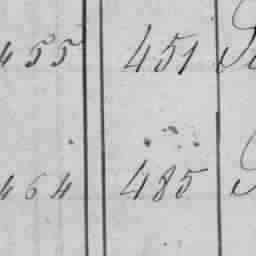 455 451
464 485